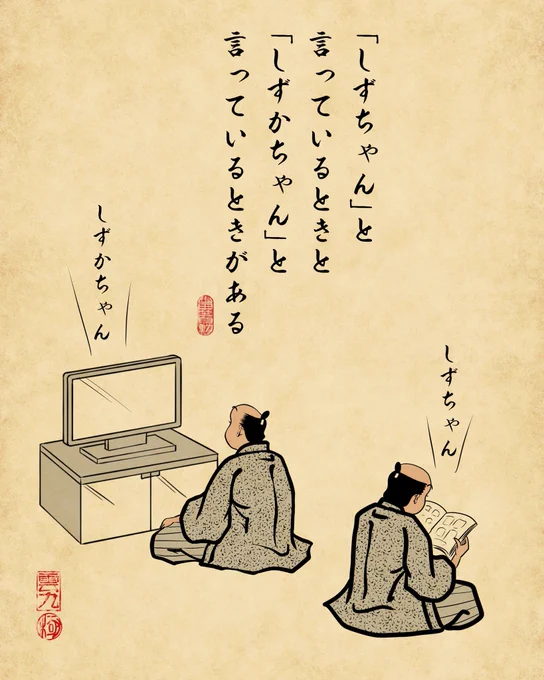 「しずちゃん」と
言っているときと
「しずかちゃん」と
言っているときがある
しずちゃん
しずかちゃん